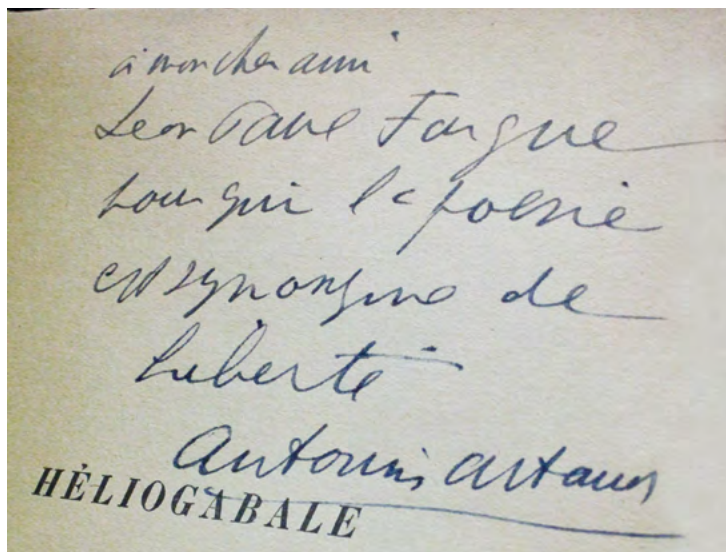 à mon cher ami
Leon Paul Fargue
pour qui la poesie
est synonyme de
Liberté
Antonin Artaud
HÉLIOGABALE